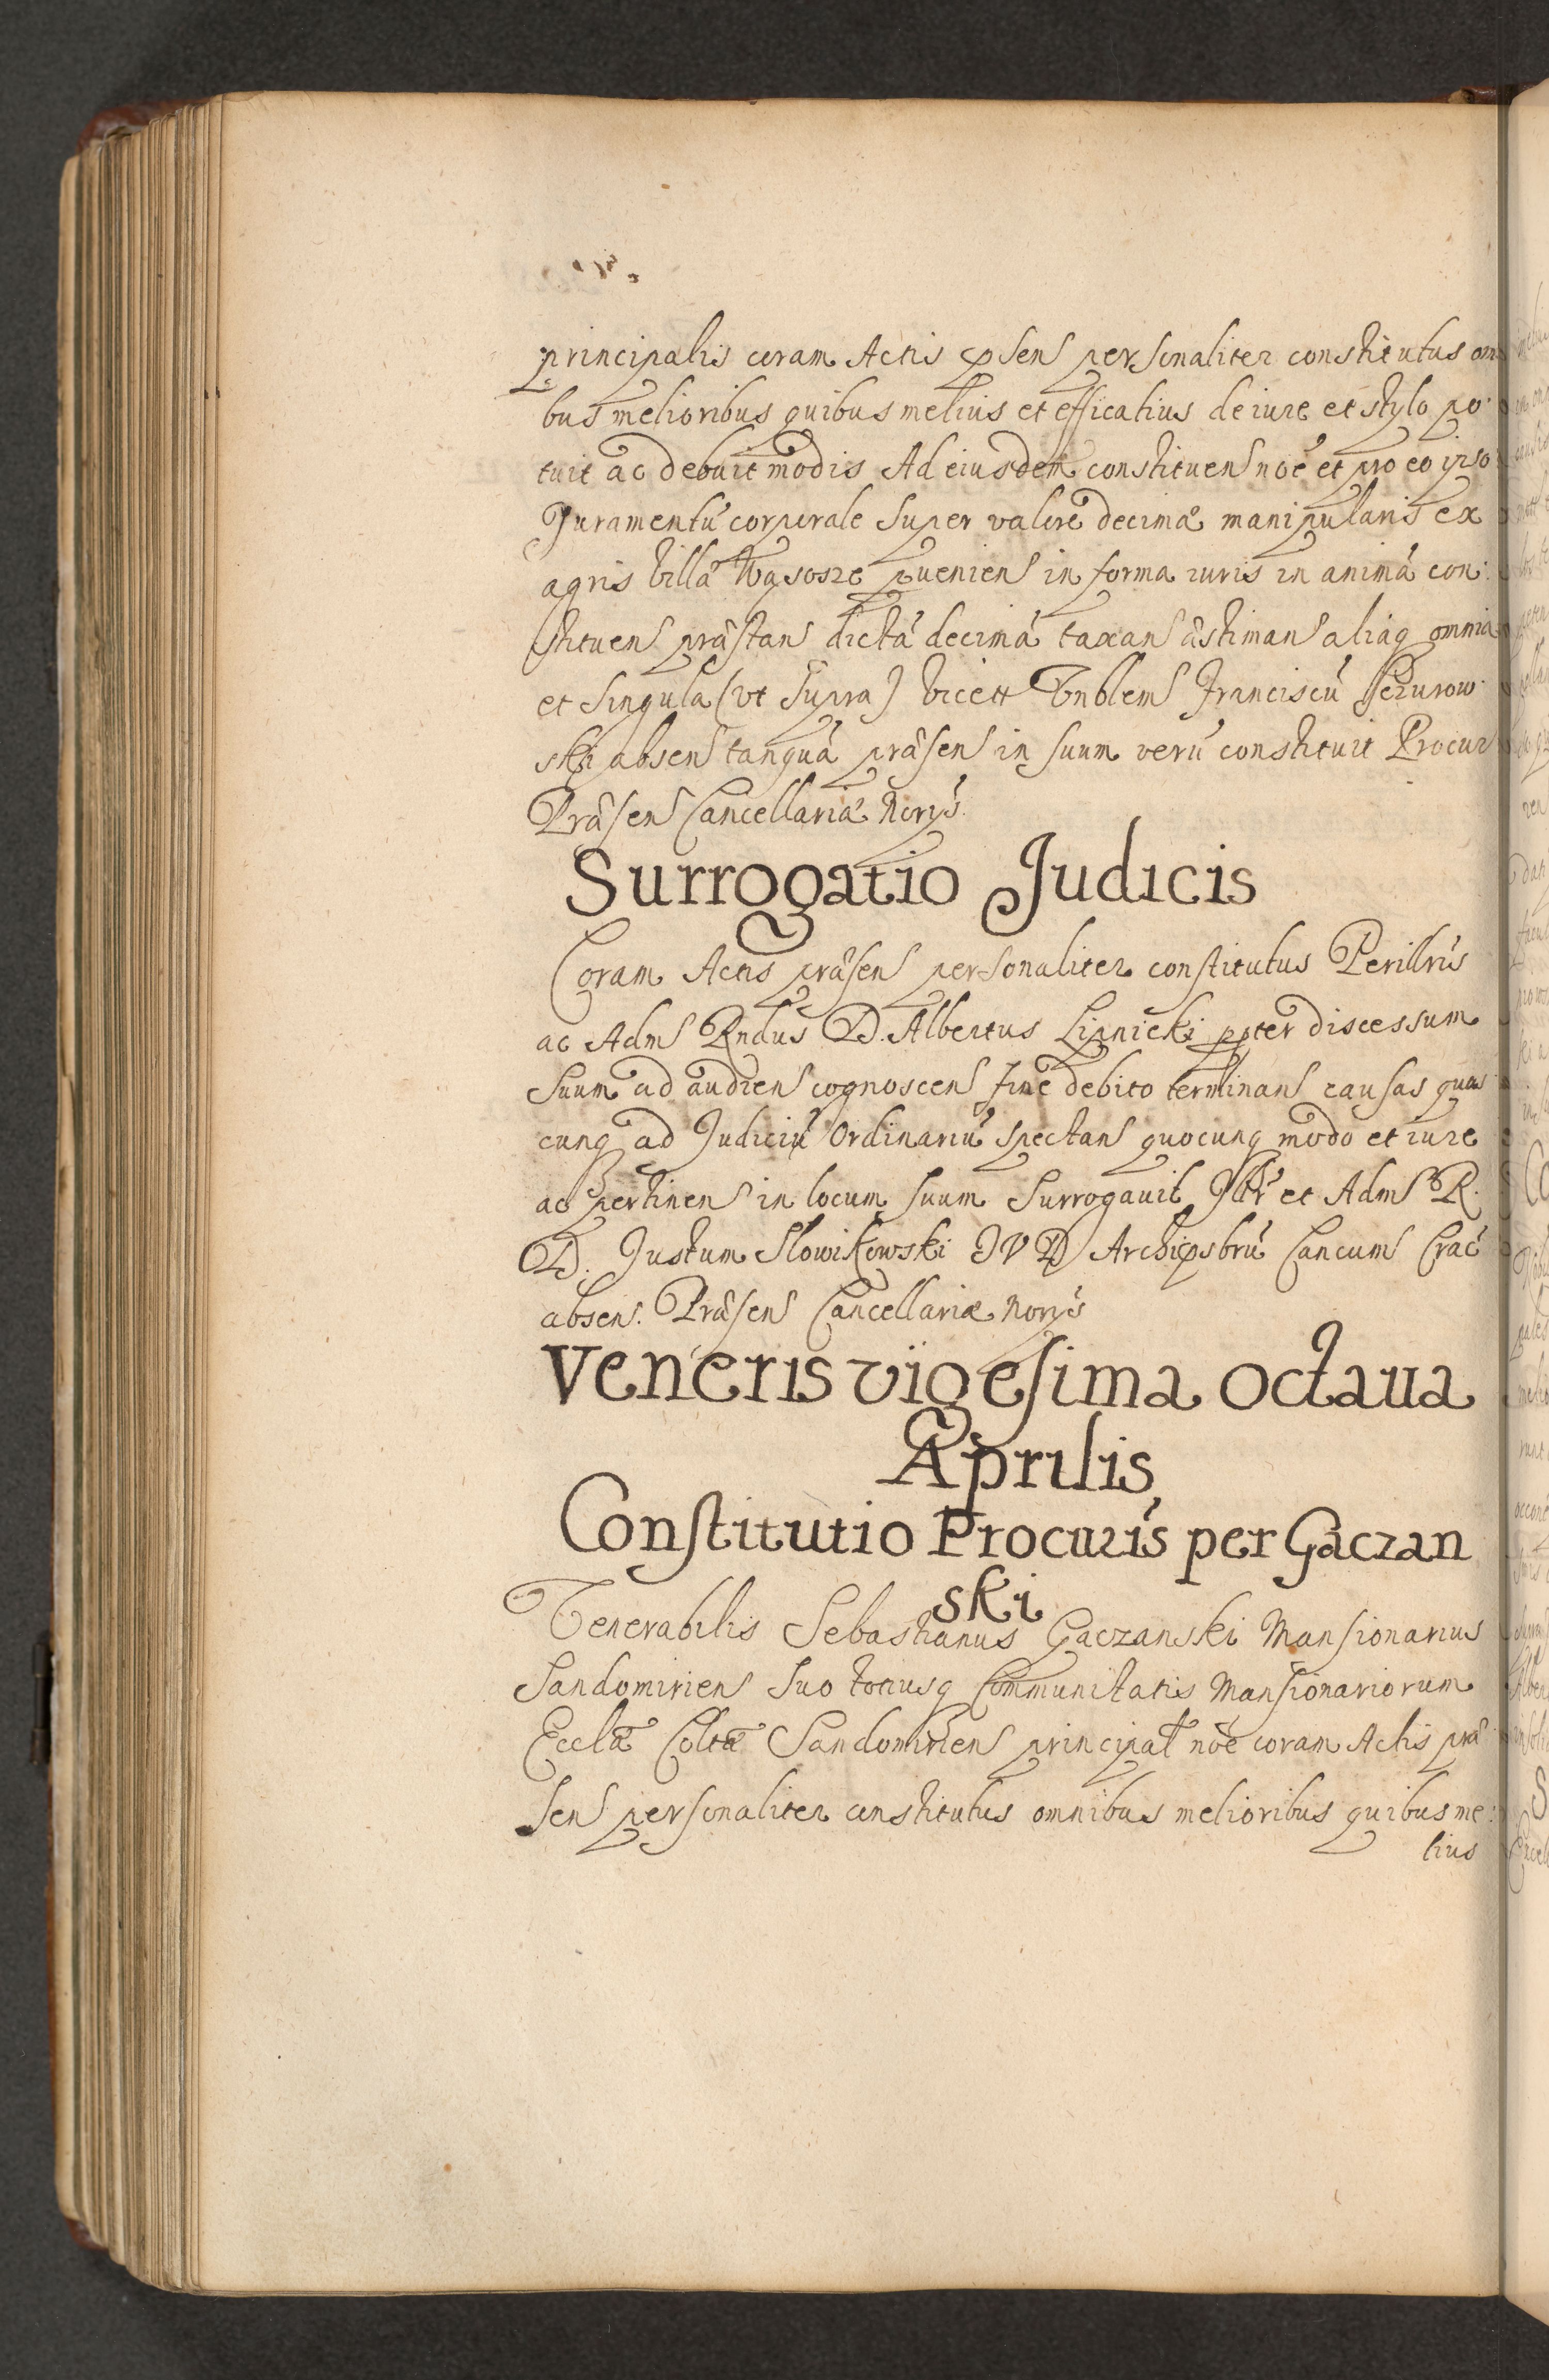 principalis coram Actis psens personaliter constitutus om
bus melioribus quibus melius et efficatius de iure et stylo po
tuit ac debuit modis Ad eiusdem constituens noe et pro eo ipso
Juramentu corporale super valore decimæ manipularis ex
agris villæ Wąsosze pueniens in forma iuris in anima con:
stituens præstans dictá decimá taxans æstimans aliaq omnia
et singula (vt supra) Vnblem Franciscú
ski absens tanquá præsens in suum verú constituit Procur
Præsens Cancellariæ Norys
Surrogatio Judicis
Coram Actis præsens personaliter constitutus Perillris
ac Adm Rndus D. Albertus Lipnicki ppter discessum
suum ad audiens cognoscens fine debito terminans causas quas
cunq ad Judiciú Ordinariú spectans quocunq modo et iure
ac pertinens in locum suum Surrogavit Illr et Adm R.
D. Justum Słowikowski JVD Archipsbrú Cancum Crac
absens. Præsens Cancellariæ Norys
Veneris vigesima octaua
Aprilis
Constitutio Procuris per Gaczan
ski
Venerabilis Sebastianus Gaczanski Mansionarius
Sandomiriens suo totiusq Communitatis Mansionariorum
Ecclæ Coltæ Sandomiriens principal noe coram Actis præ
sens personaliter constitutus omnibus melioribus quibus me:
lius